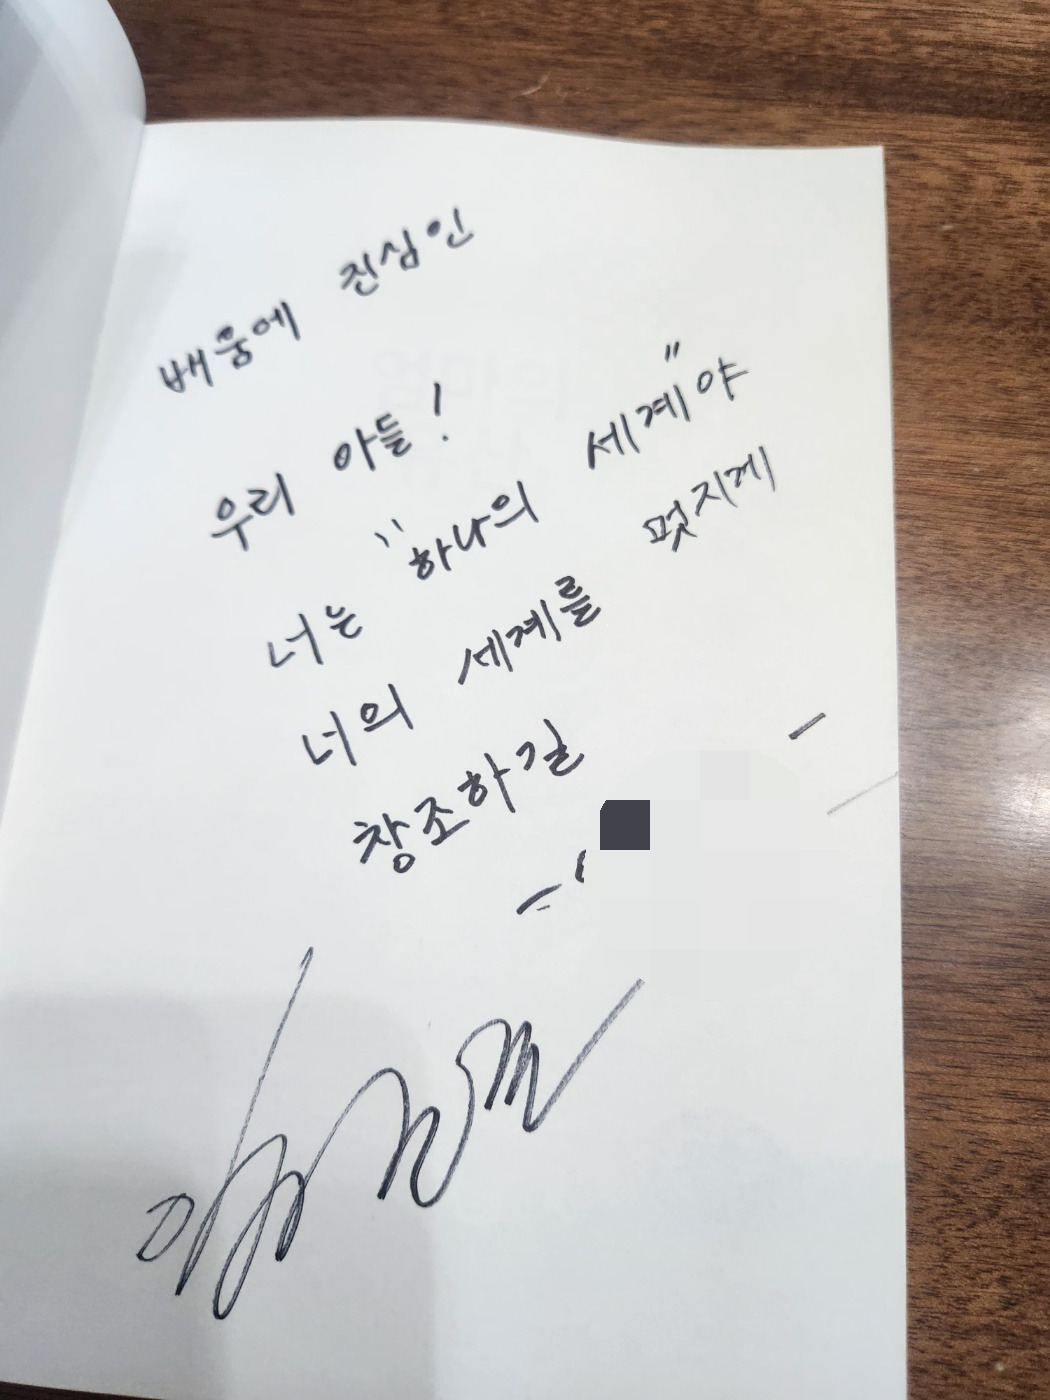 배움에 진심인
우리 아들!
너는 "하나의 세계"야
너의 세계를 멋지게
창조하길